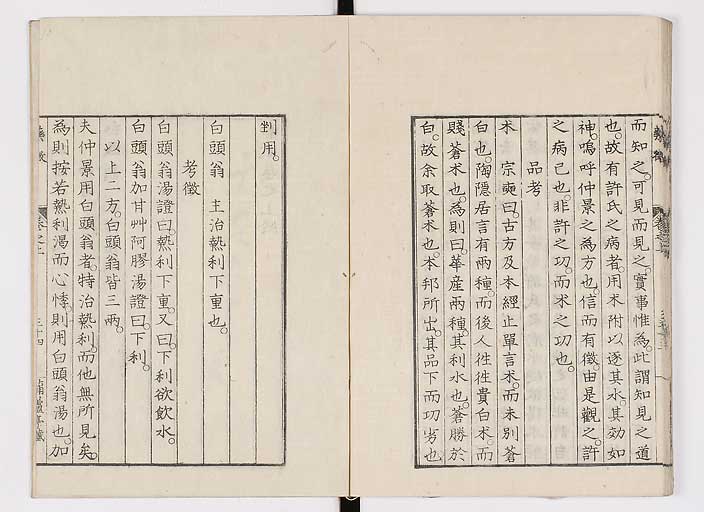 而知之。可見而見之。實事惟為。此謂知見之道
也。故有許氏之病者。用朮附以逐其水。其効如
神。嗚呼仲景之為方也。信而有徵。由是觀之。許
之病已也。非許之功。而朮之功也。
品考
朮 宗奭曰。古方及本經止單言朮。而未別蒼
白也。陶隱居言有兩種。而後人徃徃貴白朮。而
賤蒼朮也。為則曰。華産兩種。其利水也。蒼勝於
白。故余取蒼朮也。本邦所出。其品下而功劣也。
剉用。
白頭翁 主治熱利下重也。
考徵
白頭翁湯證曰。熱利下重。又曰。下利欲飲水。
白頭翁加甘艸阿膠湯證曰。下利。
以上二方。白頭翁皆三兩。
夫仲景用白頭翁者。特治熱利。而他無所見矣。
為則按若熱利渴而心悸。則用白頭翁湯也。加
藥徵
卷之上
三十四